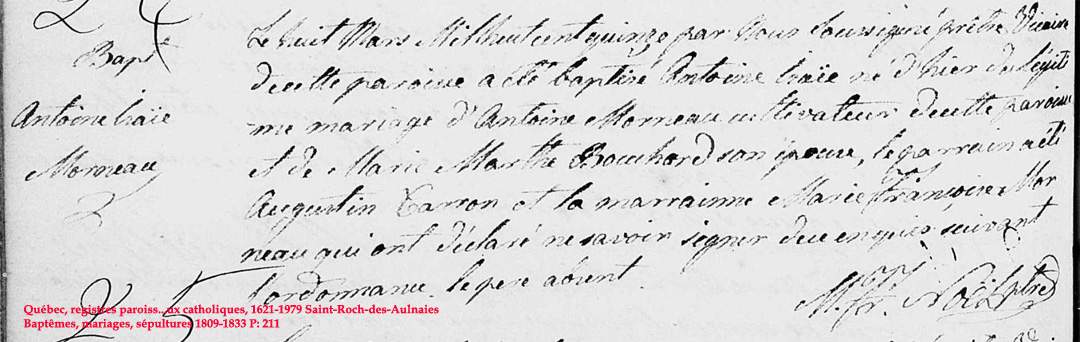 Bapt
Antoine Isaïe
Morneau
Le huit Mars Mil huit cent quinze par Nous soussigné prêtre Vicaire
de cette paroisse a été baptisé Antoine Isaïe né d'hier du légiti
me mariage d'Antoine Morneau cultivateur de cette paroisse
et de Marie Marthe Bouchard son épouse, le parrain a été
Augustin Carron et la marrainne Marie Françoise Mor
neau qui ont déclaré ne savoir signer de ce enquis suivant
l'ordonnance. le pere absent
Noël Ptre
25
Québec, registres paroiss...ux catholiques, 1621-1979 Saint-Roch-des-Aulnaies
Baptêmes, mariages, sépultures 1809-1833 P: 211